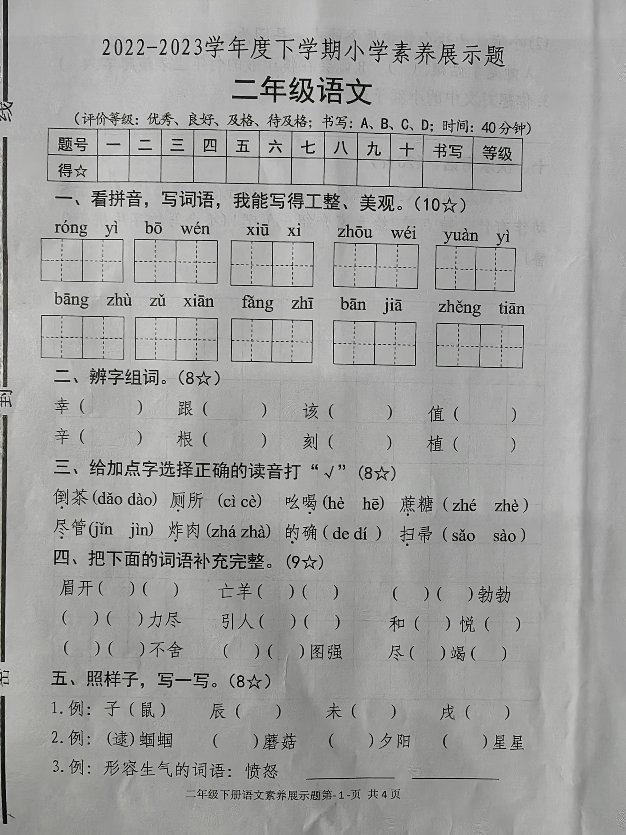 2022-2023学年度下学期小学素养展示题
二年级语文
(评价等级：优秀、良好、及格、待及格；书写：A、B、C、D；时间：40分钟)
题号 一 二 三 四 五 六 七 八 九 十 书写 等级
得☆
一、看拼音，写词语，我能写得工整、美观。(10☆)
róng yì bō wén xiū xi zhōu wéi yuàn yì
bāng zhù zǔ xiān fǎng zhī bān jiā zhěng tiān
二、辨字组词。(8☆)
幸( ) 跟( ) 该( ) 值( )
辛( ) 根( ) 刻( ) 植( )
三、给加点字选择正确的读音打“√”(8☆)
倒茶(dǎo dào) 厕所 (cì cè) 吆喝(hè hē) 蔗糖 (zhé zhè)
尽管(jǐn jìn) 炸肉(zhá zhà) 的确(de dí ) 扫帚 (sǎo sào)
四、把下面的词语补充完整。(9☆)
眉开( )( ) 亡羊( )( ) ( )( )勃勃
( )( )力尽 引人( )( ) 和( )悦( )
( )( )不舍 ( )( )图强 尽( )竭( )
五、照样子，写一写。(8☆)
1.例：子(鼠) 辰( ) 未( ) 戌( )
2.例：(逮)蝈蝈 ( )蘑菇 ( )夕阳 ( )星星
3.例：形容生气的词语：愤怒
二年级下册语文素养展示题第-1-页 共4页